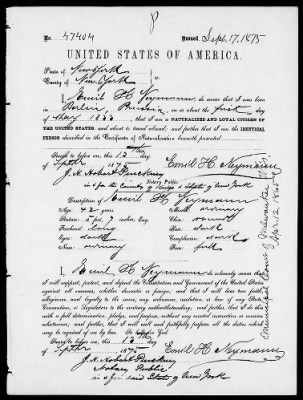 8
No. 47404 Issued Sept. 17, 1875
UNITED STATES OF AMERICA.
State of New York
County of New York
I, Emil H Neymann, do swear that I was born
in Berlin, Prussia, on or about the first day
of May 1833; that I am a NATURALIZED AND LOYAL CITIZEN OF
THE UNITED STATES, and about to travel abroad; and further that I am the IDENTICAL
PERSON described in the Certificate of Naturalization herewith presented.
Sworn to before me, this 15 day
of Septbr 1875 Emil H. Neymann
J. H. Hobart
Notary Public
in & for the County of Kings & State of New York
Description of Emil H Neymann
Age: 42 years Mouth: ordinary
Stature: 5 feet 7 inches, Eng. Chin: round
Forehead: long Hair: dark
Eyes: dark Complexion: dark
Nose: ordinary Face: full
I, Emil H Neymann do solemnly swear that
I will support, protect, and defend the Constitution and Government of the United States
against all enemies, whether domestic or foreign; and that I will bear true faith,
allegiance, and loyalty to the same, any ordinance, resolution, or law of any State,
Convention, or Legislature to the contrary notwithstanding; and further, that I do this
with a full determination, pledge, and purpose, without any mental reservation or evasion
whatsoever; and further, that I will well and faithfully perform all the duties which
may be required of me by law. So help me God.
Sworn to before me, this 15 day
of Septbr 1875 Emil H. Neymann
J. H. Hobart
Notary Public
State of New York
Municipal Court of Milwaukee
April 12 1865